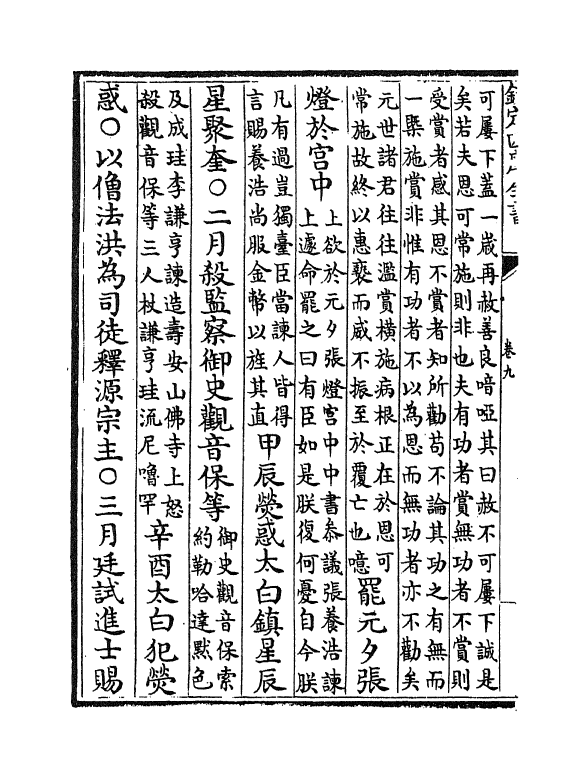 欽定四庫全書
卷九
可屢下蓋一嵗再赦善良喑啞其曰赦不可屢下誠是
矣若夫恩可常施則非也夫有功者賞無功者不賞則
受賞者感其恩不賞者知所勸苟不論其功之有無而
一槩施賞非惟有功者不以為恩而無功者亦不勸矣
元世諸君往往濫賞橫施病根正在於恩可
常施故終以惠褻而威不振至於覆亡也噫
罷元夕張
燈於宫中
上欲於元夕張燈宫中中書叅議張養浩諫
上遽命罷之曰有臣如是朕復何憂自今朕
凡有過豈獨臺臣當諫人皆得
言賜養浩尚服金幣以旌其直
甲辰熒惑太白鎮星辰
星聚奎○二月殺監察御史觀音保等
御史觀音保索
約勒哈達黙色
及成珪李謙亨諫造壽安山佛寺上怒
殺觀音保等三人杖謙亨珪流尼嚕罕
辛酉太白犯熒
惑○以僧法洪為司徒釋源宗主○三月廷試進士賜